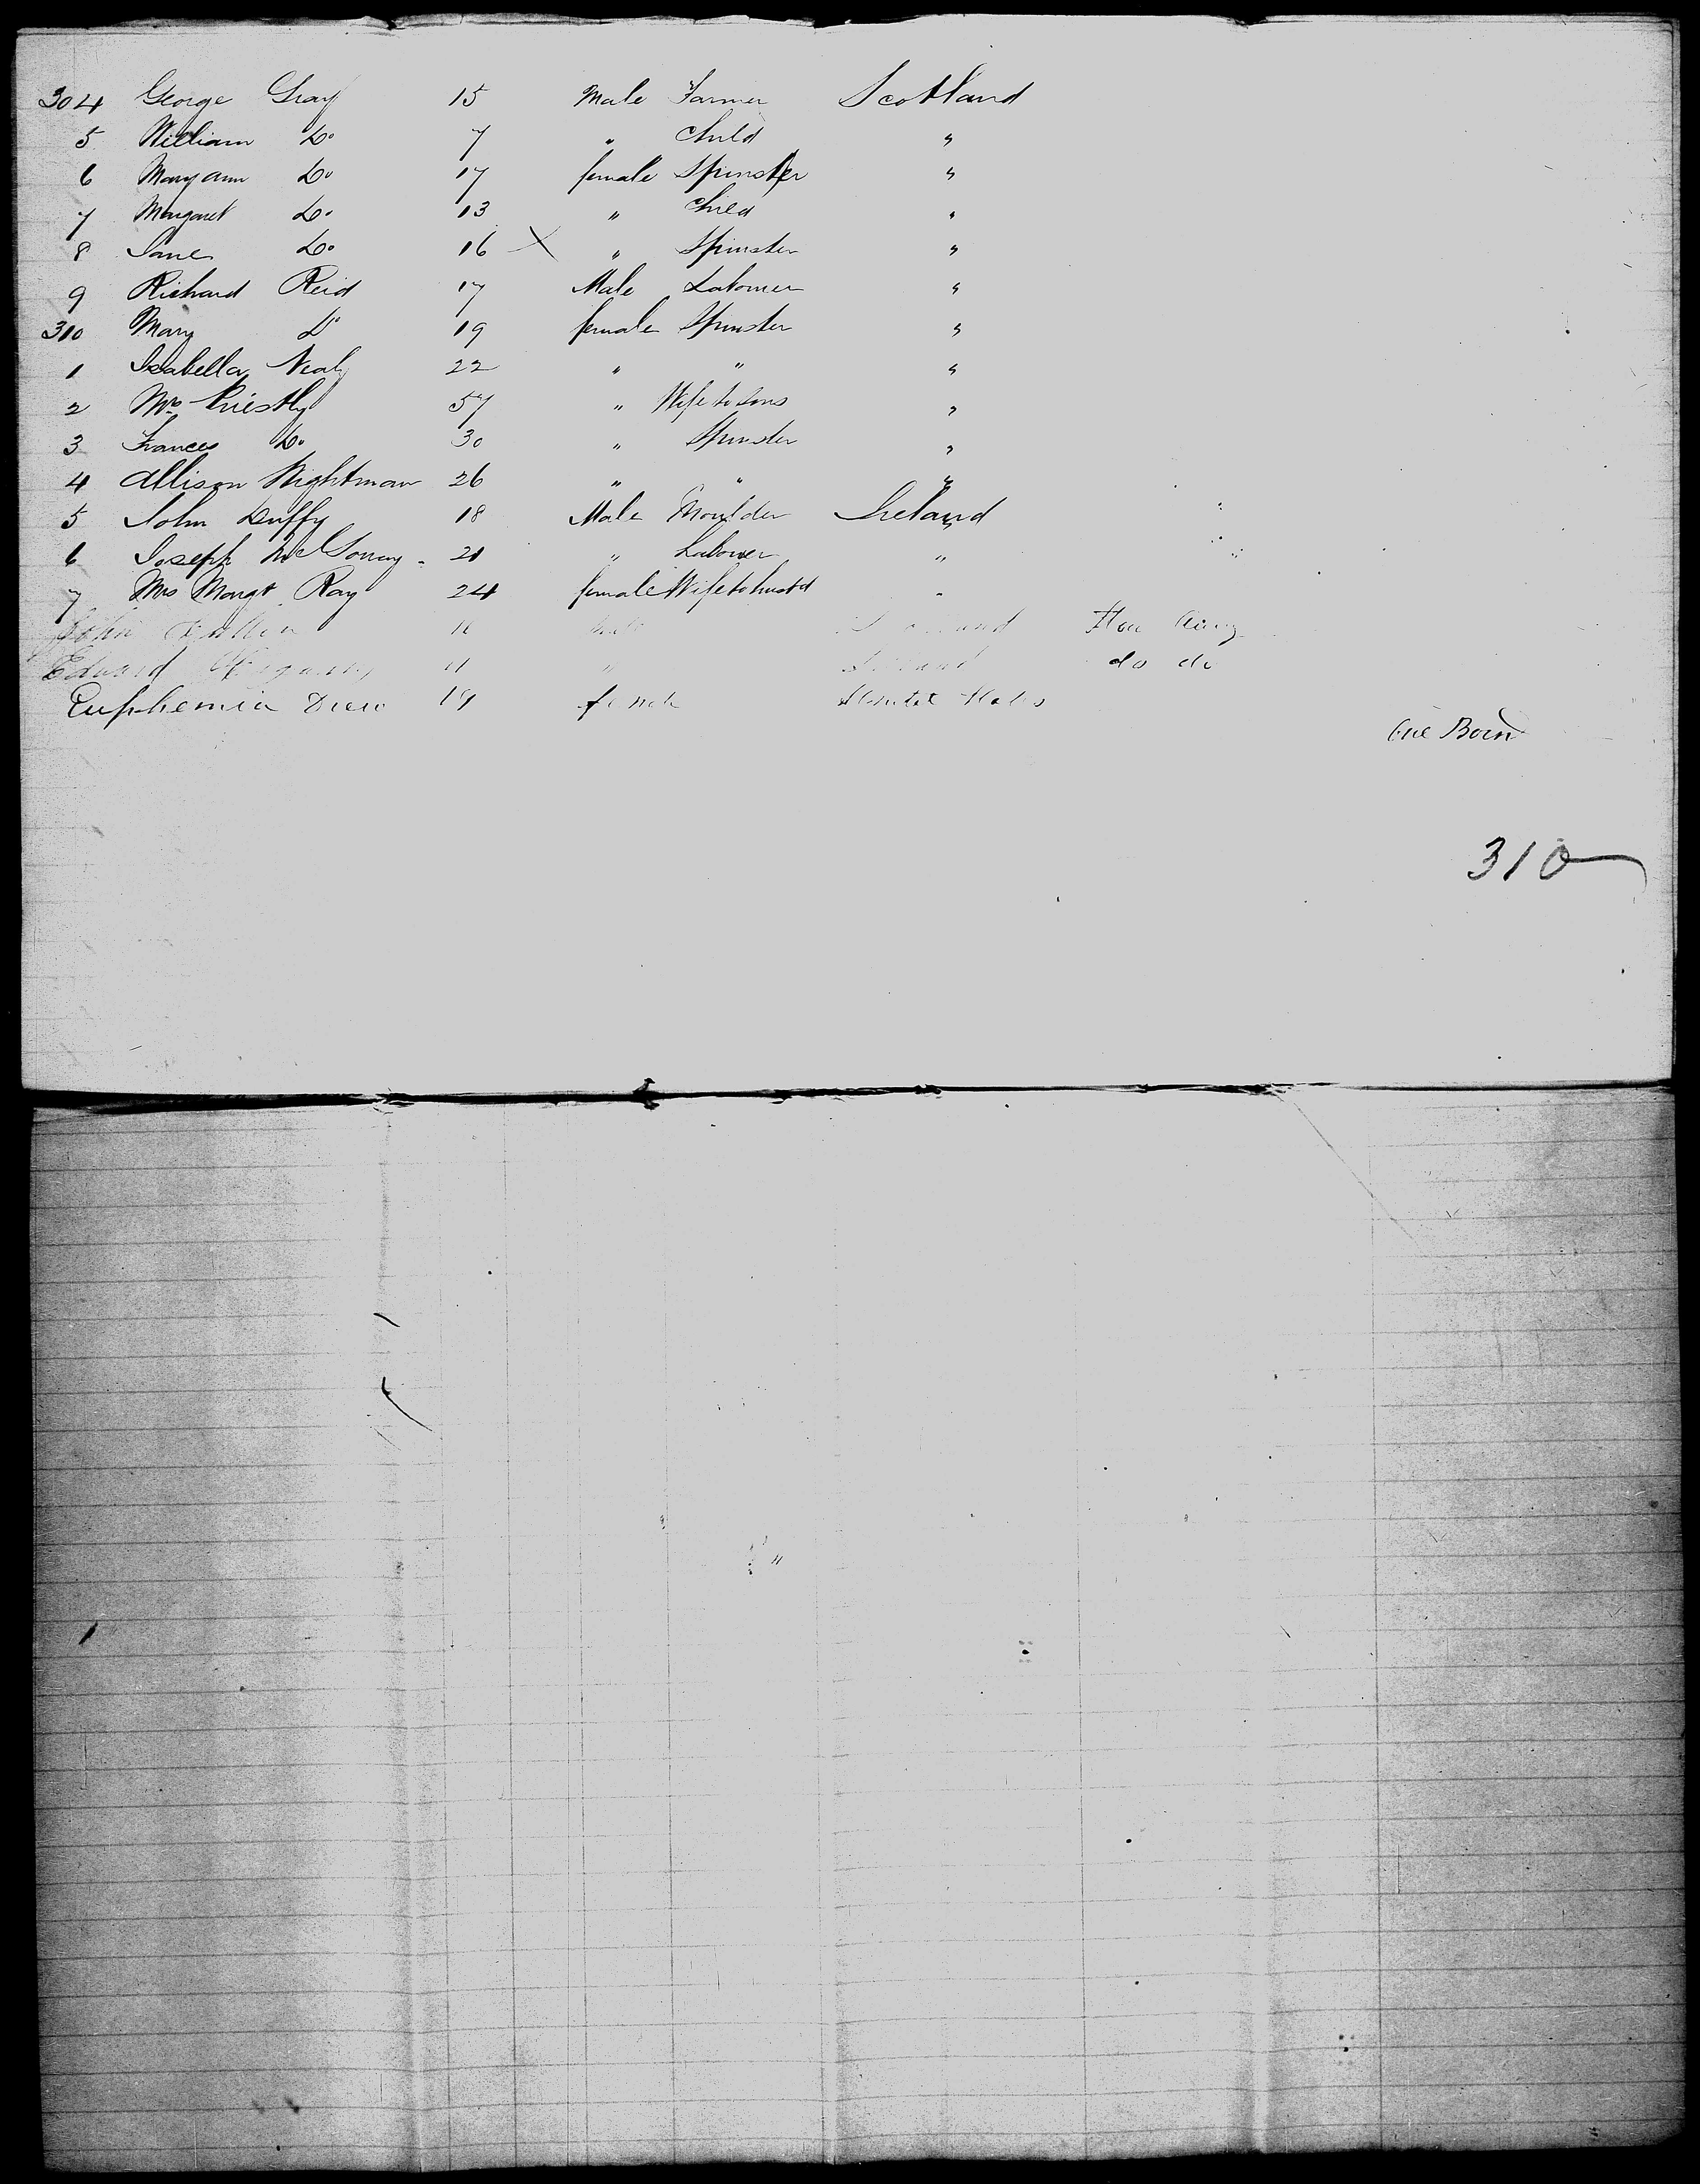 304 George Gray 15 Male Farmer Scotland
5 William Do 7 " Child "
6 Mary ann Do 17 female Spinster "
7 Margaret Do 13 " Child "
8 Jane Do 16 X " Spinster "
9 Richard Reid 17 Male Labourer "
310 Mary Do 19 female Spinster "
1 Isabella Nealy 22 " " "
2 Mrs Priestly 57 " Wife to sons "
3 Frances Do 30 " Spinster "
4 Allison Wightman 26 " " "
5 John Duffy 18 Male Moulder Ireland
6 Joseph 21 " Labourer "
7 Mrs Margt Ray 24 female Wife to husbd "
John
Edward do do
Euphemia Drew 19 female States
One Born
310